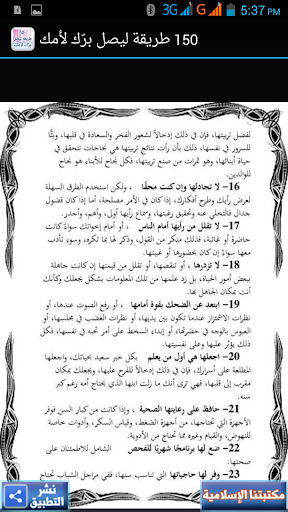 3G G 5:37 PM
150 طريقة ليصل برّك لأمك
لفضل تربيتها، فإن في ذلك إدخالاً لشعور الفخر والسعادة في قلبها، وبثًّا
للسرور في نفسها، ذلك بأن رأت نتائج تربيتها هي نجاحات تتحقق في
حياة أبنائها، وهو ثمرات من صنع تربيتها، فكل نجاح للأبناء هو نجاح
للوالدين.
16– لا تجادلها وإن كنت محقًا ، ولكن استخدم الطرق السهلة
لعرض رأيك وطرح أفكارك، إذا كان في الأمر مصلحة، أما إذا كان فضول
جدال فالتخلي عنه وتحقيق رغبتها، وسماع رأيها أولى، وأحق.
17– لا تقلل من رأيها أمام الناس ، أو أمام إخوانك سواءً كانت
حاضرة أو غائبة، فذلك منكر من القول، وذلك مما تكره، وسوء تأدب
معها سواءً إن كان بحضورها أو غيبتها.
18– لا تزدرها ، أو تنقصها، أو تقلل من قيمتها إن كانت جاهلة
ببعض أمور الحياة، بل زد علمها من تلك المعلومات بشكل يجعلك وأنت
أنت بمكان الجاهل.
19– ابتعد عن الضحك بقوة أمامها ، أو رفع الصوت عندها، أو
نظرات الاشمئزاز عندما تكون بين يديها، أو نظرات الغضب في مجلسها، أو
العبوس بالوجه في حضرتها، أو إبداء السخط على أمر تحبه في نفسها، فكل
ذلك يؤثر عليها وعلى نفسيتها.
20– اجعلها هي أول من يعلم بكل خبر سعيد بحياتك، واجعلها
المطلعة على أسرارك، إن كان في ذلك إدخالاً للفرح عليها، ويجعلك بمكان
مقرب إلى قلبها، فهي ترى أنك ما زلت ابنها الذي يحتاج أمه رغم كبر
سنه.
21– حافظ على رعايتها الصحية ، وإذا كانت من كبار السن فوفر
الأجهزة التي تحتاجها، من أجهزة الضغط، وقياس السكر، وأدوات خاصة
للنهوض، والقيام وغيره مما تحتاج من الأدوية.
22– ضع لها برنامجًا شهريًا للفحص الشامل للاطمئنان على
صحتها.
23– وفر لها حاجياتها التي تناسب سنها، ففي مراحل الشباب تحتاج
نشر
التطبيق
مكتبتنا الإسلامية